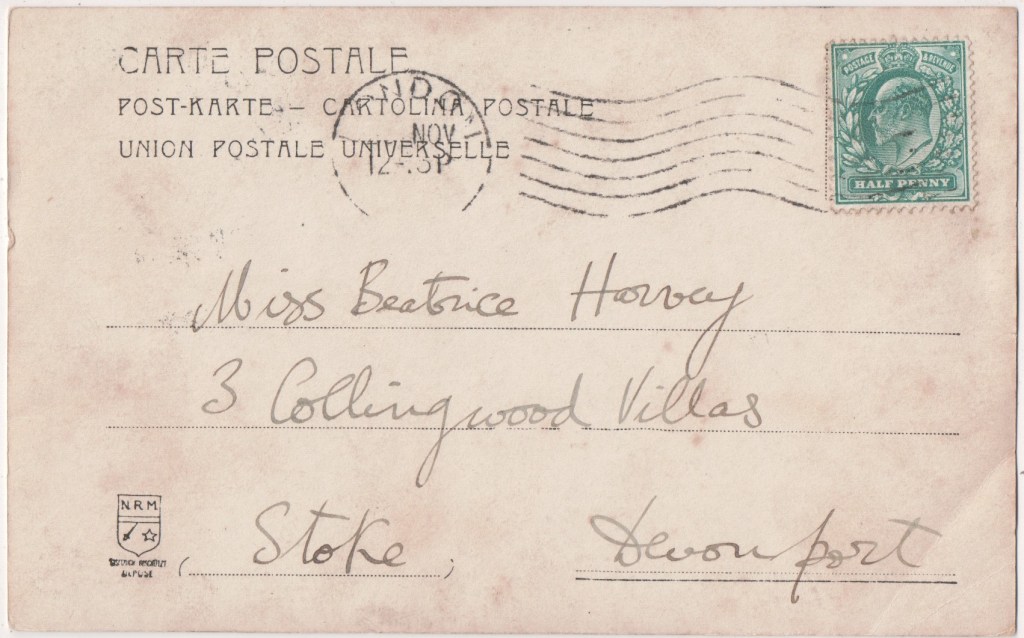 CARTE POSTALE
POST-KARTE – CARTOLINA POSTALE
UNION POSTALE UNIVERSELLE
NOV
POSTAGE & REVENUE
HALF PENNY
Miss Beatrice Harvey
3 Collingwood Villas
Stoke,
Devonport
N.R.M.
DÉPOSÉ